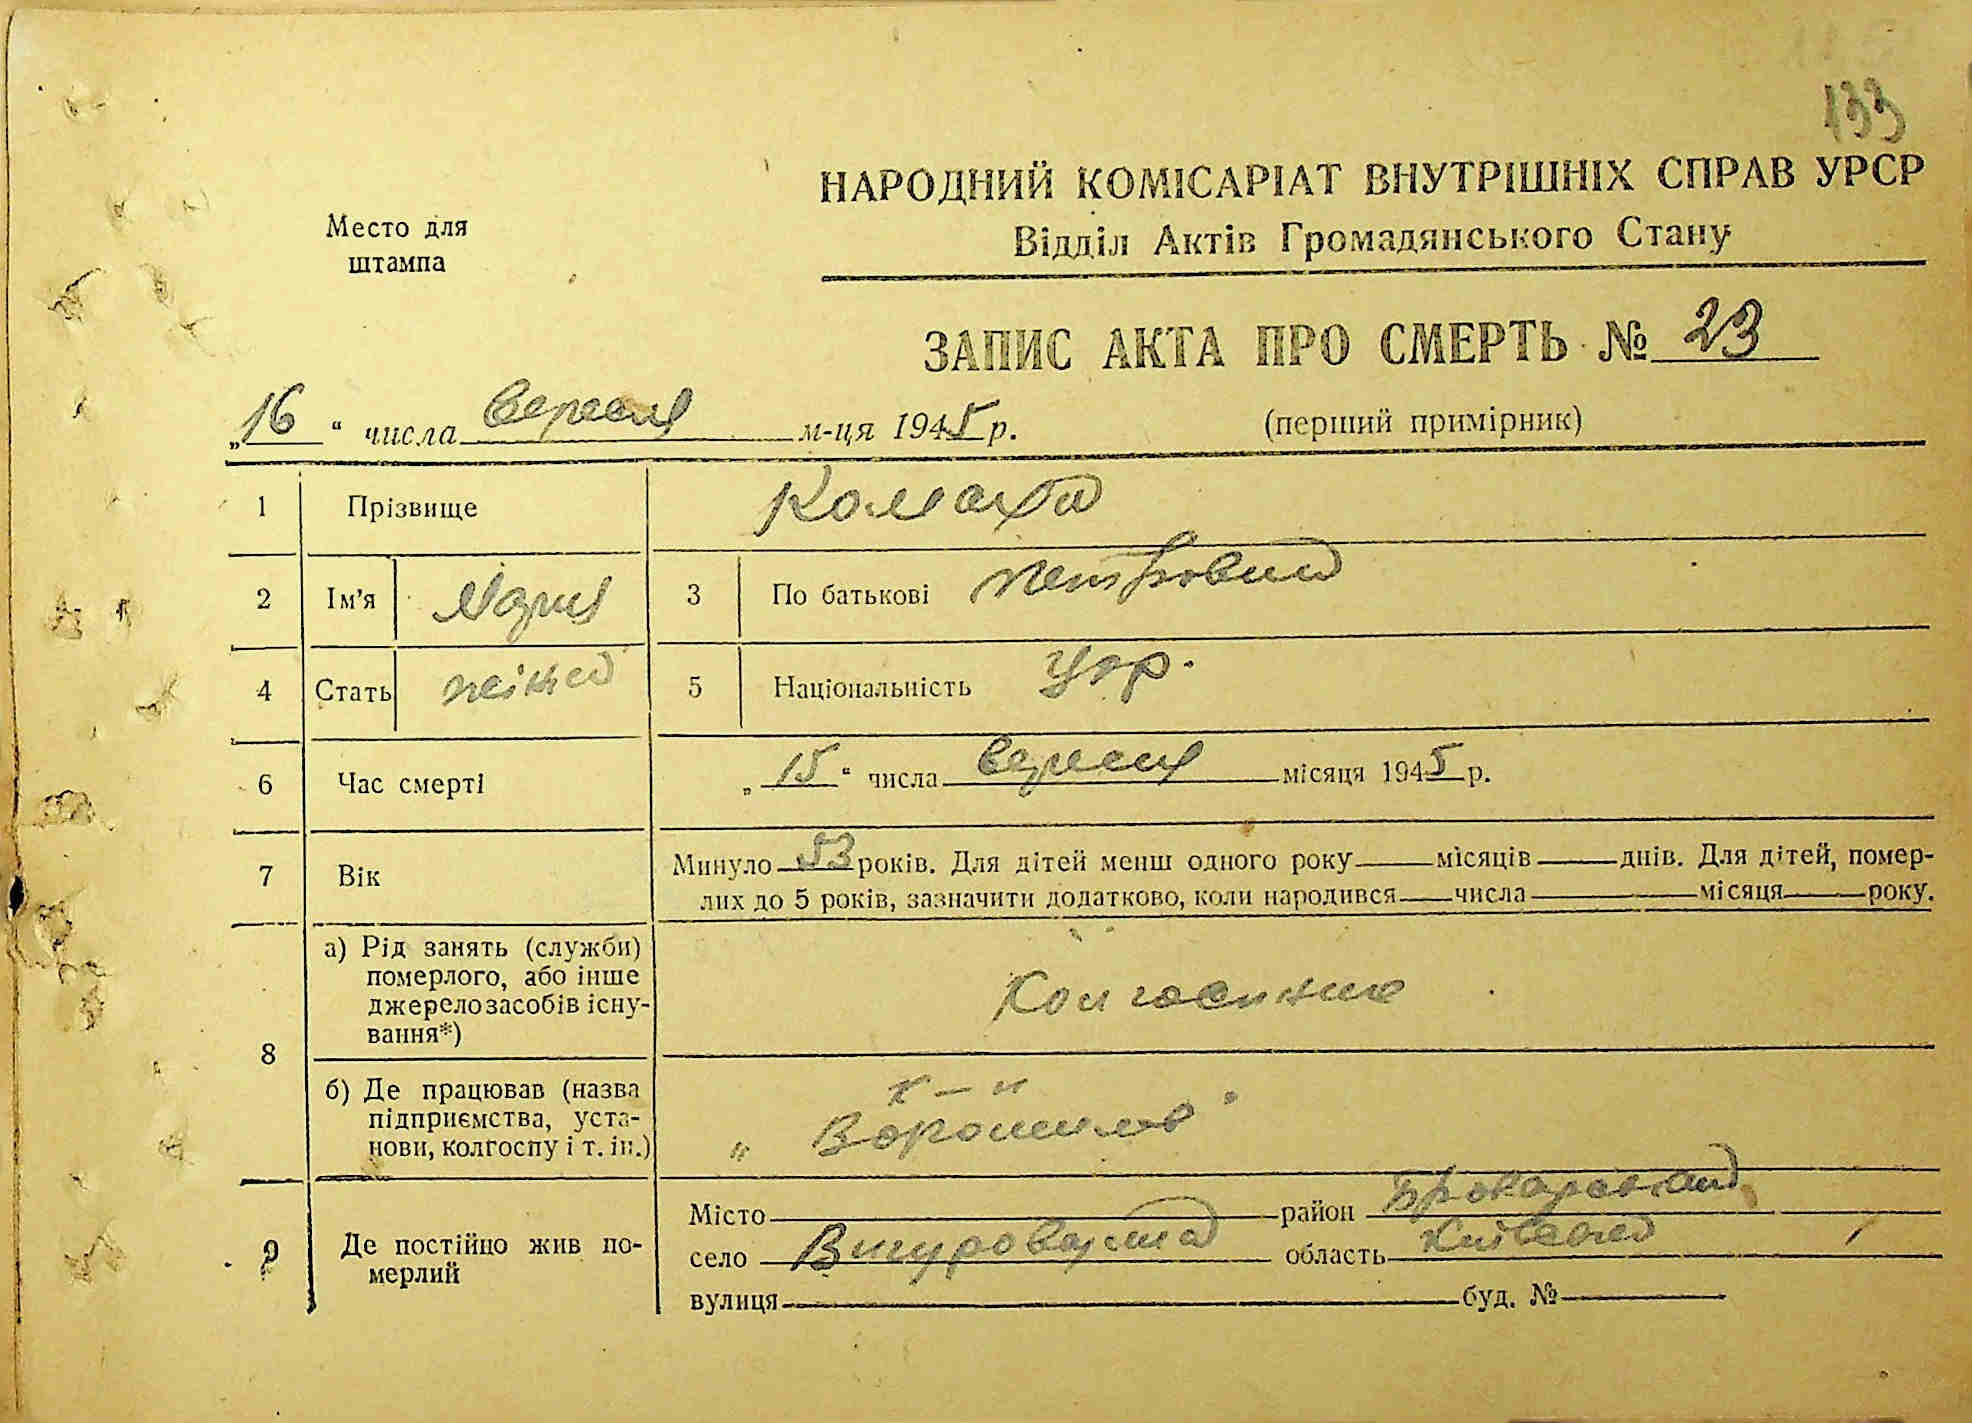 133
НАРОДНИЙ КОМІСАРІАТ ВНУТРІШНІХ СПРАВ УРСР
Відділ Актів Громадянського Стану
Место для
штампа
ЗАПИС АКТА ПРО СМЕРТЬ № 23
„16“ числа вересня м-ця 1945 р.
(перший примірник)
1 Прізвище Комаха
2 Ім'я 3 По батькові
4 Стать 5 Національність Укр.
6 Час смерті „15“ числа вересня місяця 1945 р.
7 Вік Минуло 53 років. Для дітей менш одного року місяців днів. Для дітей, помер-
лих до 5 років, зазначити додатково, коли народився числа місяця року.
8 а) Рід занять (служби)
померлого, або інше
джерело засобів існу-
вання*)
Колгоспник
б) Де працював (назва
підприємства, уста-
нови, колгоспу і т. ін.)
„Ворошилов“
9 Де постійно жив по-
мерлий
Місто район Броварський
село Вигуровщина область Київська
вулиця буд. №